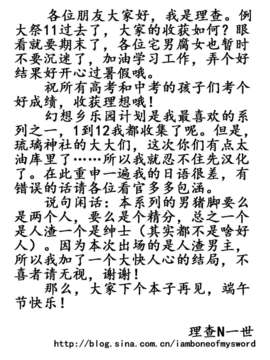 各位朋友大家好，我是理查。例
大祭11过去了，大家的收获如何？眼
看就要期末了，各位宅男腐女也暂时
不要沉迷了，加油学习工作，弄个好
结果好开心过暑假哦。
祝所有高考和中考的孩子们考个
好成绩，收获理想哦！
幻想乡乐园计划是我最喜欢的系
列之一，1到12我都收集了呢。但是，
琉璃神社的大大们，这次你们有点太
油库里了……所以我就忍不住先汉化
了。在此重申一遍我的日语很差，有
错误的话请各位看官多多包涵。
说句闲话：本系列的男猪脚要么
是两个人，要么是个精分，总之一个
是人渣一个是绅士（其实都不是啥好
人）。因为本次出场的是人渣男主，
所以我加了一个大快人心的结局，不
喜者请无视，谢谢！
那么，大家下个本子再见，端午
节快乐！
理查N一世
http://blog.sina.com.cn/iamboneofmysword